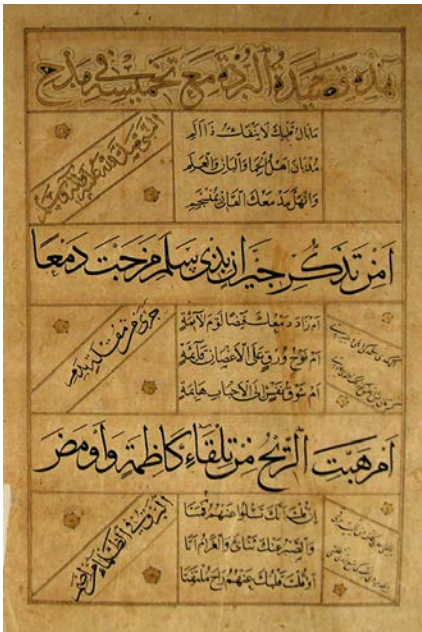 هذه قصيدة البردة مع تخميسه في مدح
النبي صلى الله عليه وآله وسلم
ما بال قلبك لا ينفك ذا ألم
مذ بان اهل الحما والبان والعلم
وانهل مدمعك القاني بمنسجم
امن تذكر جيران بذي سلم مزجت دمعا
جرى من مقلة بدم
ام زاد دمعك فيضا لوم لائمة
ام نوح ورق على الاغصان قائمة
ام شوق نفس الى الاحباب هائمة
ام هبت الريح من تلقاء كاظمة واومض
البرق في الظلماء من اضم
ان قلت انك تسلوا عنهم
والصبر عنك تنائى والغرام اتا
او قلت قلبك عنهم راح ملتفتا